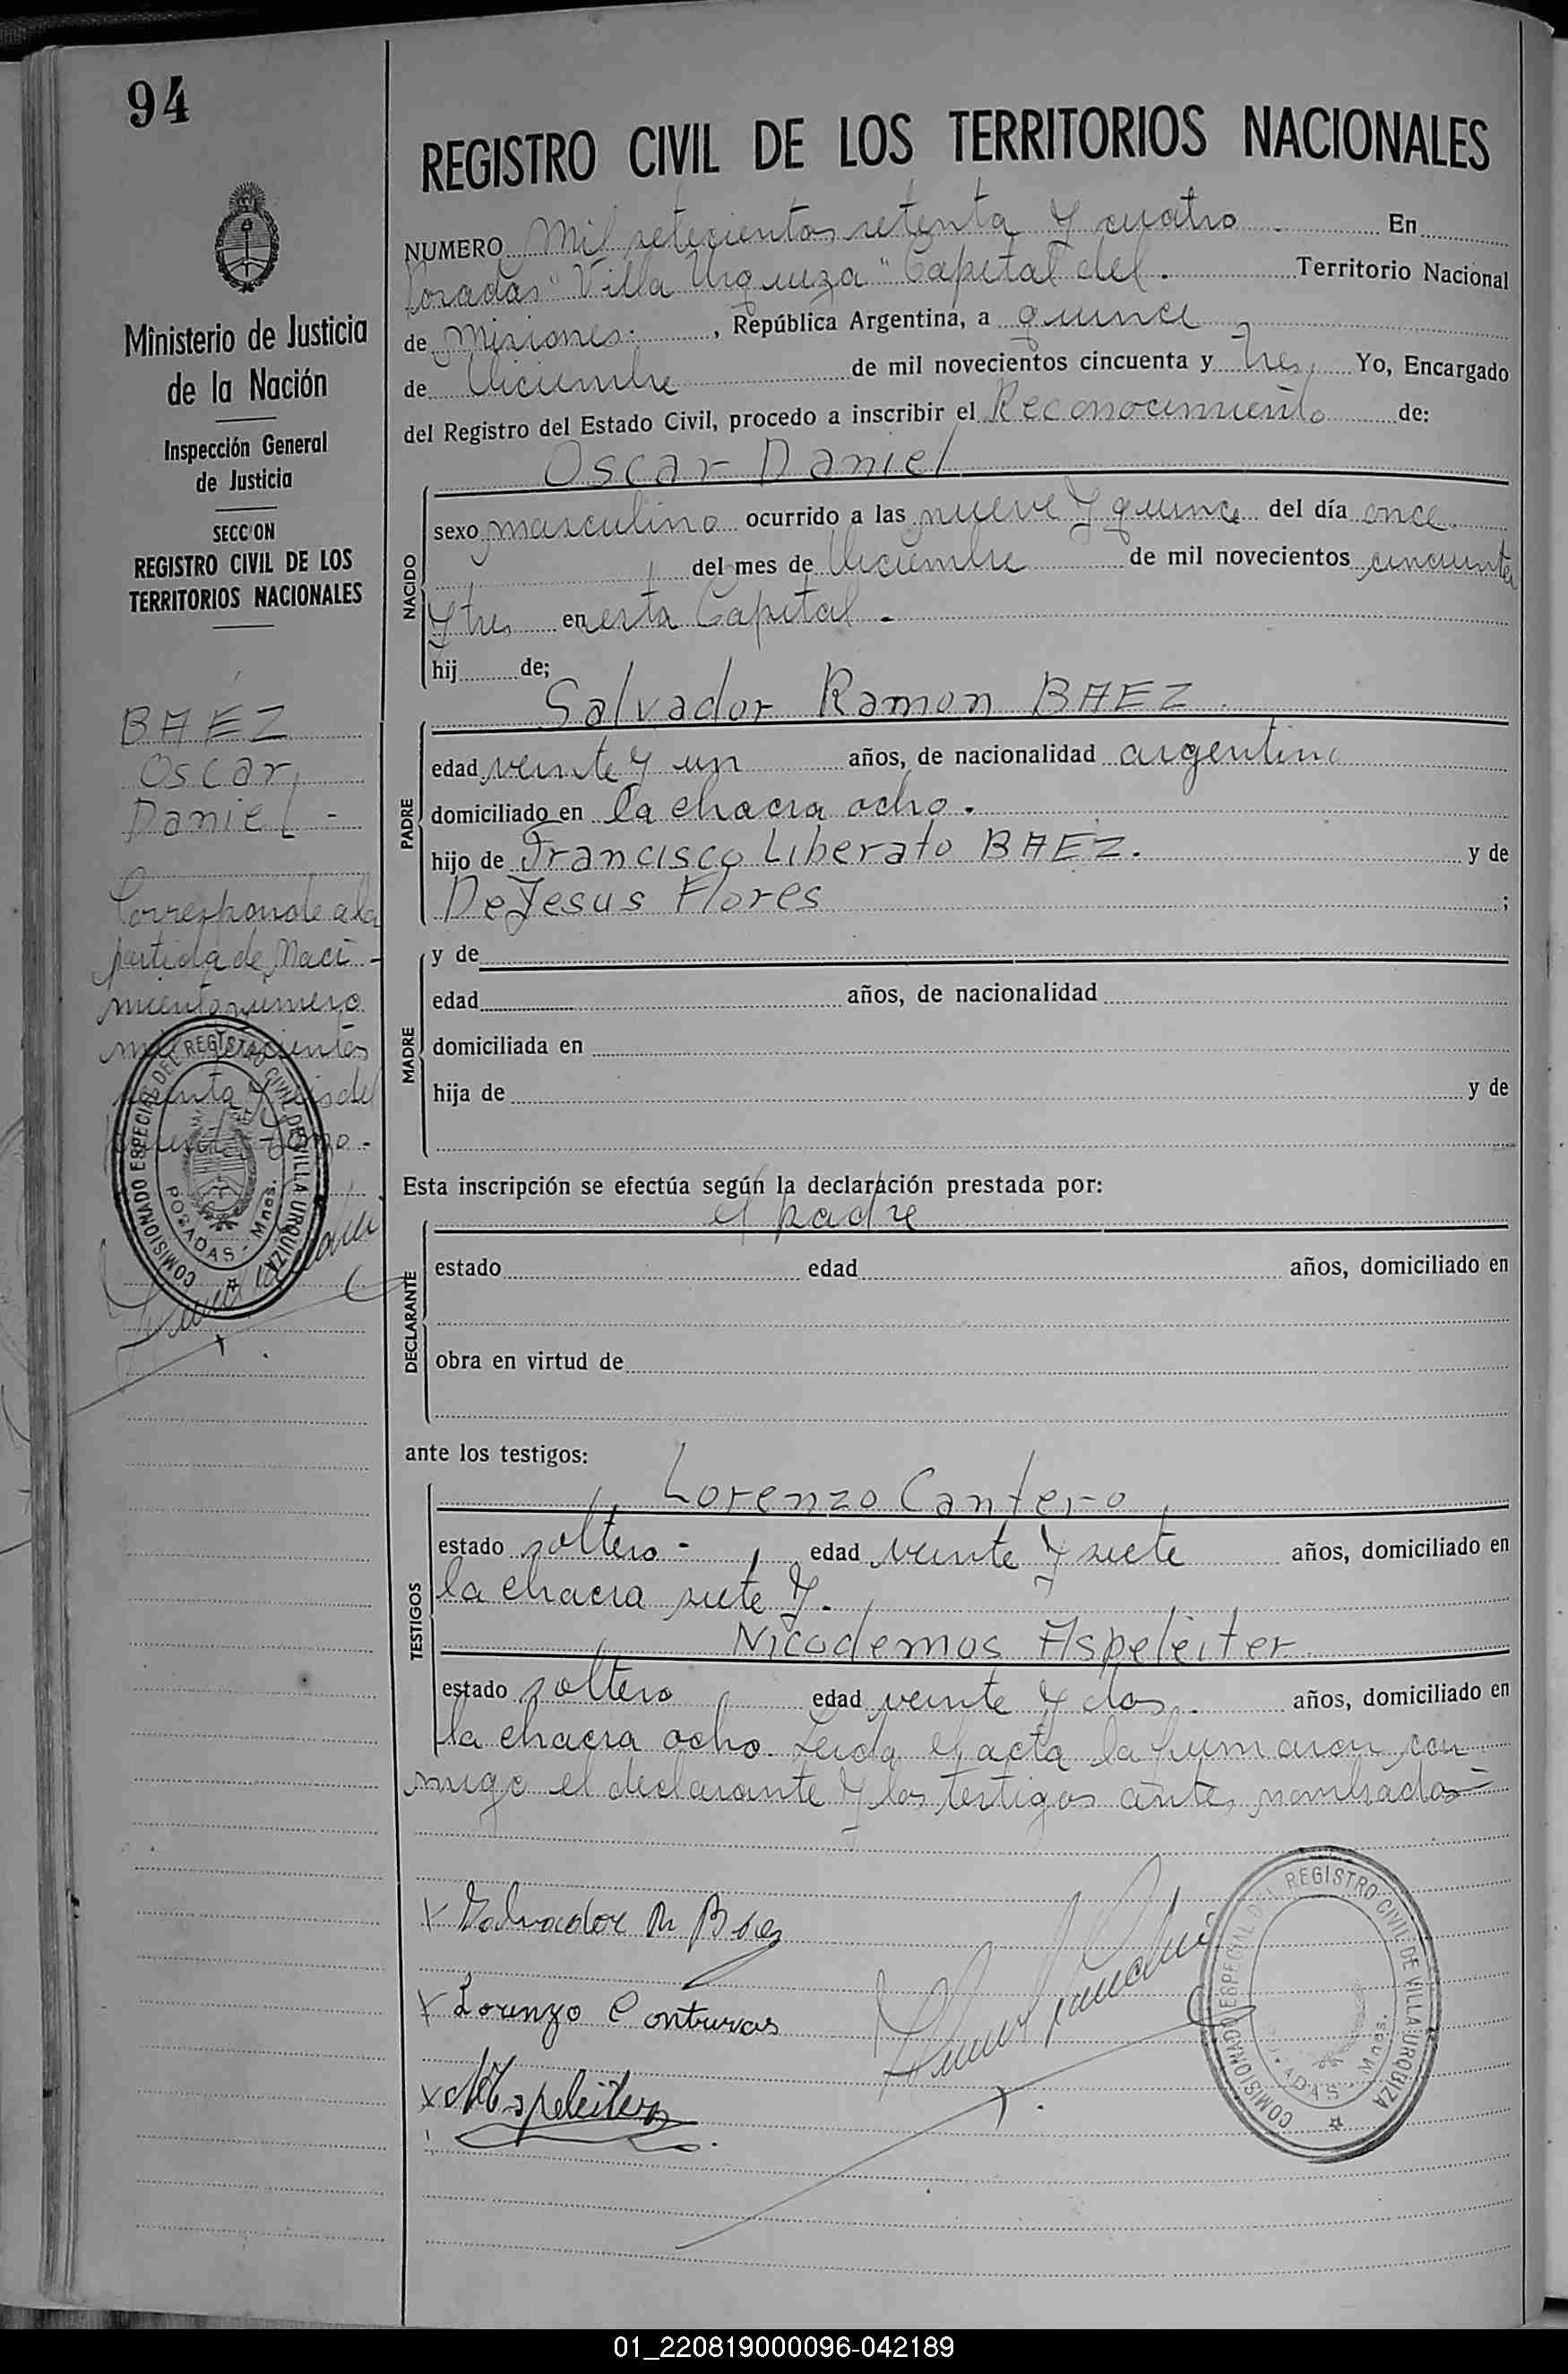 94
Ministerio de Justicia
de la Nación
Inspección General
de Justicia
SECCION
REGISTRO CIVIL DE LOS
TERRITORIOS NACIONALES
BAEZ
Oscar
Daniel -
Corresponde a la
partida de Naci -
miento número
COMISIONADO ESPECIAL DEL REGISTRO CIVIL DE VILLA URQUIZA
POSADAS - Mnes.
REGISTRO CIVIL DE LOS TERRITORIOS NACIONALES
NUMERO Mil setecientos setenta y cuatro En
Posadas "Villa Urquiza" Capital del. Territorio Nacional
de Misiones. , República Argentina, a quince
de Diciembre de mil novecientos cincuenta y tres. Yo, Encargado
del Registro del Estado Civil, procedo a inscribir el Reconocimiento de:
Oscar Daniel
NACIDO
sexo masculino ocurrido a las nueve y quince del día once
del mes de Diciembre de mil novecientos cincuenta
y tres en esta Capital.
hij de;
Salvador Ramon BAEZ.
PADRE
edad veinte y un años, de nacionalidad argentino
domiciliado en la chacra ocho.
hijo de Francisco Liberato BAEZ. y de
De Jesus Flores ;
MADRE
y de
edad años, de nacionalidad
domiciliada en
hija de y de
Esta inscripción se efectúa según la declaración prestada por:
el padre
DECLARANTE
estado edad años, domiciliado en
obra en virtud de
ante los testigos:
Lorenzo Cantero
TESTIGOS
estado soltero - edad veinte y siete años, domiciliado en
la chacra siete y.
Nicodemos Aspeleiter
estado soltero edad veinte y dos. años, domiciliado en
la chacra ocho. Leida el acta la firmaron con
migo el declarante y los testigos antes nombrados
x Salvador R Baez
x Lorenzo Contreras
x N Aspeleiter
COMISIONADO ESPECIAL DEL REGISTRO CIVIL DE VILLA URQUIZA
POSADAS - Mnes.
01_220819000096-042189